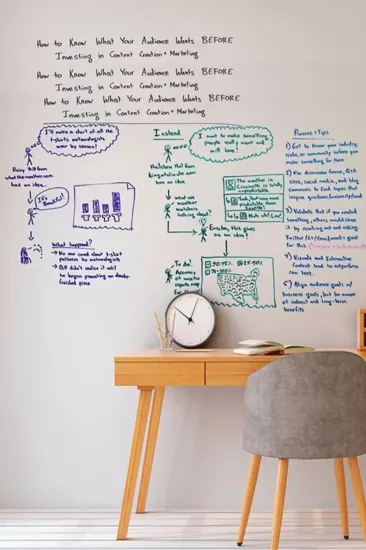 How to Know What Your Audience Wants BEFORE
Investing in Content Creation + Marketing
How to Know What Your Audience Wants BEFORE
Investing in Content Creation + Marketing
How to Know What Your Audience Wants BEFORE
Investing in Content Creation + Marketing
I'll make a chart of all the
t-shirts meteorologists
wear by season!
Rainy Bill from
whattheweather.com
has an idea...
It's
Beautiful!
What happened?
→ No one cared about t-shirt
patterns by meteorologists
→ Bill didn't realize it until he
began promoting
finished piece
Instead
I want to make something
people really want and
will love!
has an idea
what are
weather
watchers
talking about?
The weather in
Cincinnati is totally
unpredictable
Yeah, but way more
predictable than
Seattle!
Hah, oh! Low!
Eureka, this gives
me an idea!
To do:
Accuracy
of weather
reports map
Process + Tips
1) Get to know your industry,
niche, or community before you
make something for them
2) Use Association Forums, Q&A
sites, social media, and blog
comments to find topics that
inspire questions/fandom/fun
3) Validate that if you created
something, others would share
it by reaching out and asking.
4) Visuals and Interactive
Content tend to outperform
raw text
5) Align audience goals w/
business goals, but be aware
of indirect and long-term
benefits